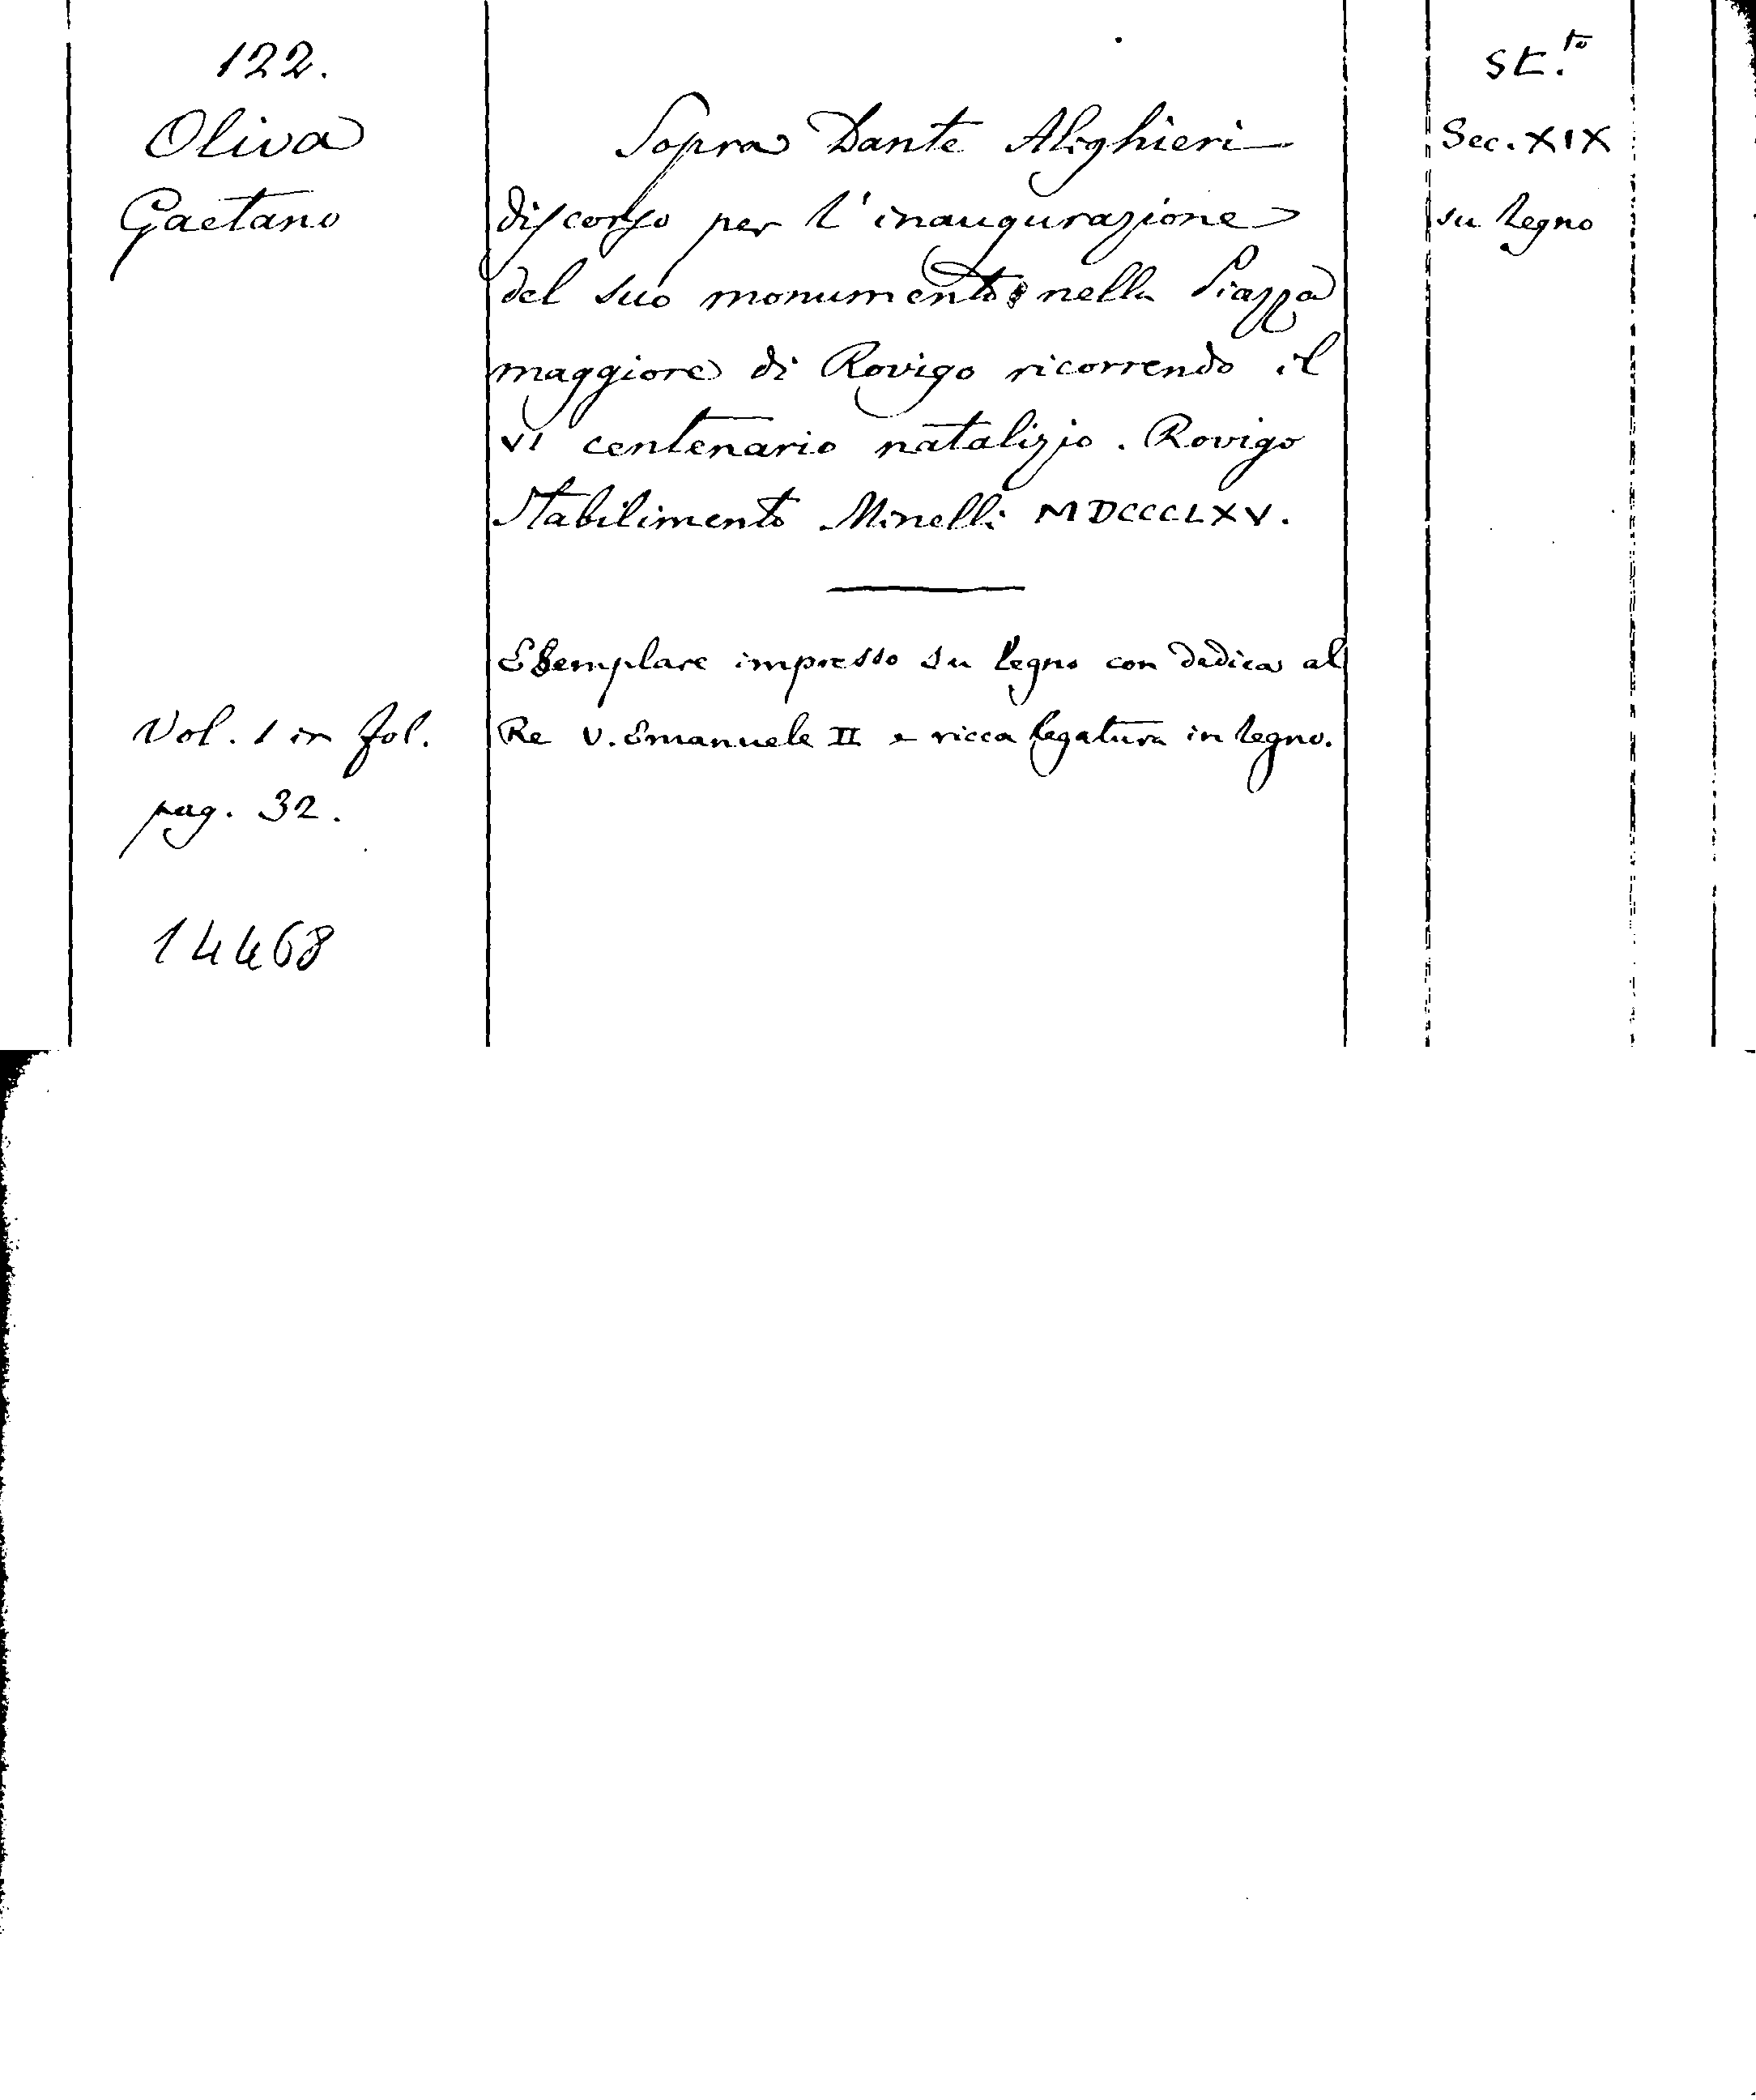 122.
Oliva
Gaetano
Vol. 1 in fol.
pag. 32.
14468
Sopra Dante Alighieri
discorso per l'inaugurazione
del suo monumento nella Piazza
maggiore di Rovigo ricorrendo il
VI centenario natalizio. Rovigo
Stabilimento Minelli MDCCCLXV.
Esemplare impresso su legno con dedica al
Re V. Emanuele II e ricca legatura in legno.
St.to
Sec. XIX
su legno